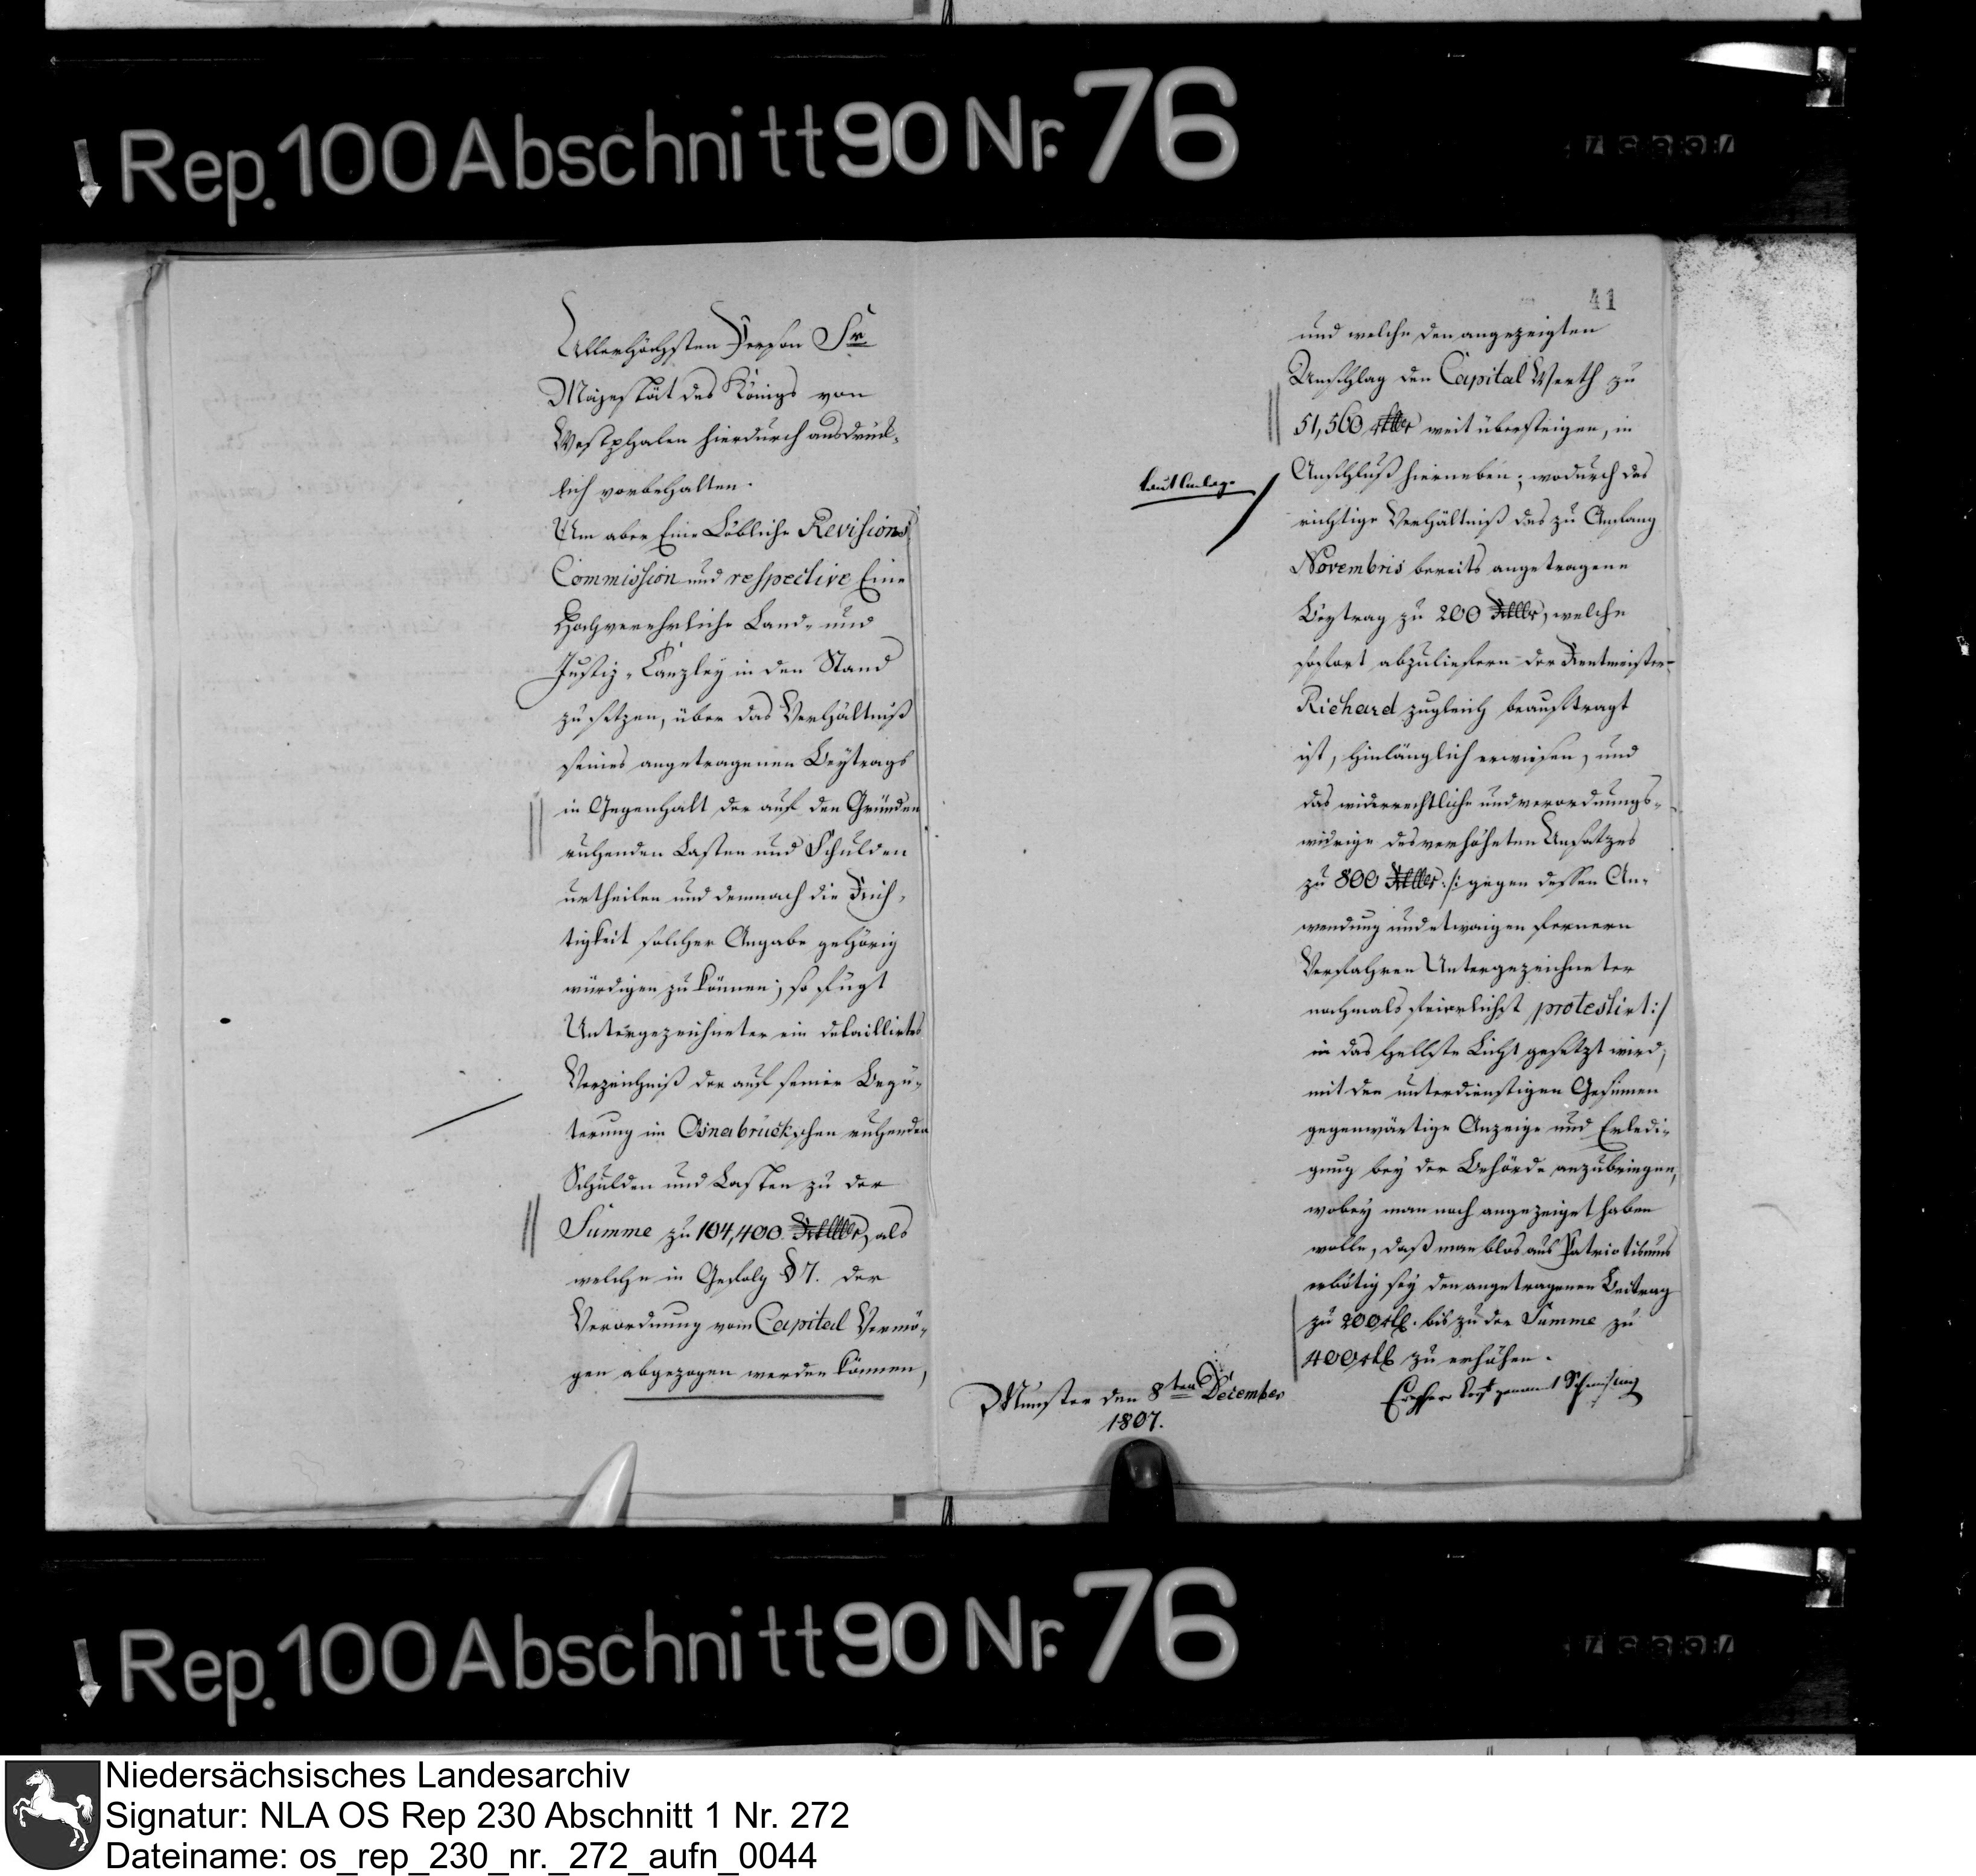 Rep. 100 Abschnitt 90 Nr. 76
Allerhöchsten Person Sr
Majestät des Königs von
Westphalen hierdurch ausdrück-
lich vorbehalten.
Um aber Eine Löbliche Revisions
Commission und respective Eine
Hochverehrliche Land- und
Justiz-Canzley in den Stand
zu setzen, über das Verhältniß
seines angetragenen Beytrags
in Gegenhalt der auf den Gründen
ruhenden Lasten und Schulden
urtheilen und demnach die Rich-
tigkeit solcher Angabe gehörig
würdigen zu können; so fügt
Untergezeichneter ein detaillirtes
Verzeichniß der auf seiner Begü-
terung im Osnabrückschen ruhenden
Schulden und Lasten zu der
Summe zu 104,400 Rthlr, als
welche in Gefolg § 7. der
Verordnung vom Capital Vermö-
gen abgezogen werden können,
41
und welche den angezeigten
Anschlag den Capital Werth zu
51,560 Rthlr weit übersteigen, in
laut Anlage
Anschluß hierneben; wodurch das
richtige Verhältniß des zu Anfang
Novembris bereits angetragene
Beytrag zu 200 Rthlr, welche
sofort abzuliefern der Rentmeister
Richard zugleich beauftragt
ist, hinlänglich erwiesen, und
das widerrechtliche und verordnungs-
widrige des verhöheten Ansatzes
zu 800 Rthlr. /: gegen dessen An-
wendung und etwaigen fernern
Verfahren Untergezeichneter
nochmals feierlichst protestirt :/
in das hellste Licht gesetzt wird;
mit den unterdienstigen Gesinnen
gegenwärtige Anzeige und Erledi-
gung bey der Behörde anzubringen,
wobey man noch angezeiget haben
wolle, daß man blos aus Patriotismus
erbötig sey den angetragenen Beitrag
zu 200 rtl. bis zu der Summe zu
400 rtl zu erhöhen.
Munster den 8ten December
1807.
genannt Schmising
Rep. 100 Abschnitt 90 Nr. 76
Niedersächsisches Landesarchiv
Signatur: NLA OS Rep 230 Abschnitt 1 Nr. 272
Dateiname: os_rep_230_nr._272_aufn_0044